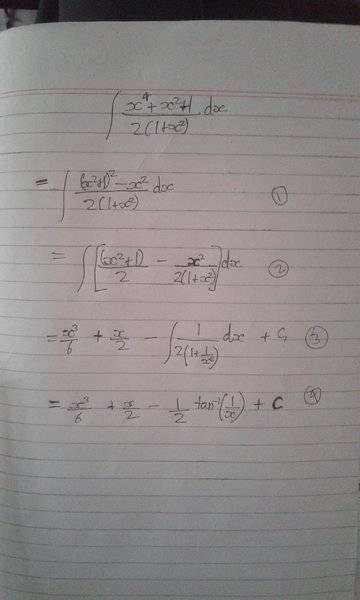 ∫ x⁴+x²+1 / 2(1+x²) dx
= ∫ (x²+1)² - x² / 2(1+x²) dx ①
= ∫ [ (x²+1) / 2 - x² / 2(1+x²) ] dx ②
= x³/6 + x/2 - ∫ 1 / 2(1+1/x²) dx + C₁ ③
= x³/6 + x/2 - 1/2 tan⁻¹(1/x) + C ④